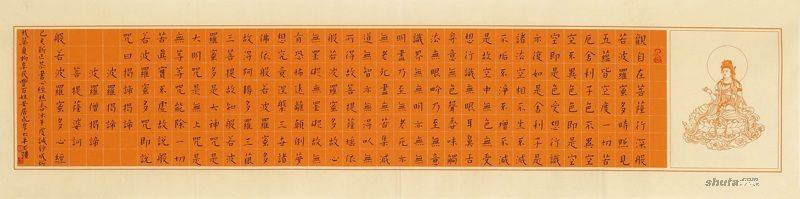 觀自在菩薩行深般
若波羅蜜多時照見
五蘊皆空度一切苦
厄舍利子色不異空
空不異色色即是空
空即是色受想行識
亦復如是舍利子是
諸法空相不生不滅
不垢不淨不增不減
是故空中無色無受
想行識無眼耳鼻舌
身意無色聲香味觸
法無眼界乃至無意
識界無無明亦無無
明盡乃至無老死亦
無老死盡無苦集滅
道無智亦無得以無
所得故菩提薩埵依
般若波羅蜜多故心
無罣礙無罣礙故無
有恐怖遠離顛倒夢
想究竟涅槃三世諸
佛依般若波羅蜜多
故得阿耨多羅三藐
三菩提故知般若波
羅蜜多是大神咒是
大明咒是無上咒是
無等等咒能除一切
苦真實不虛故說般
若波羅蜜多咒即說
咒曰揭諦揭諦
波羅揭諦
波羅僧揭諦
菩提薩婆訶
般若波羅蜜多心經